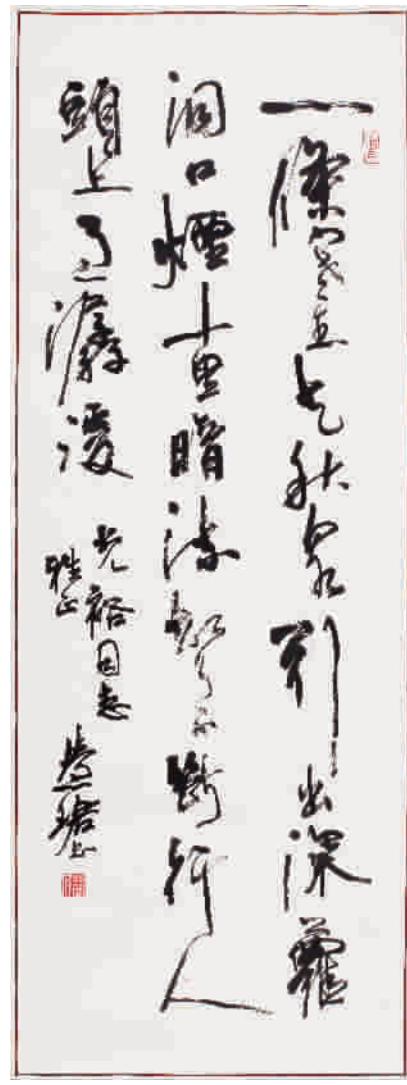 一條寒玉走秋泉引出深蘿
洞口煙十里暗流聲不斷行人
頭上過潺湲
光裕同志
雅正